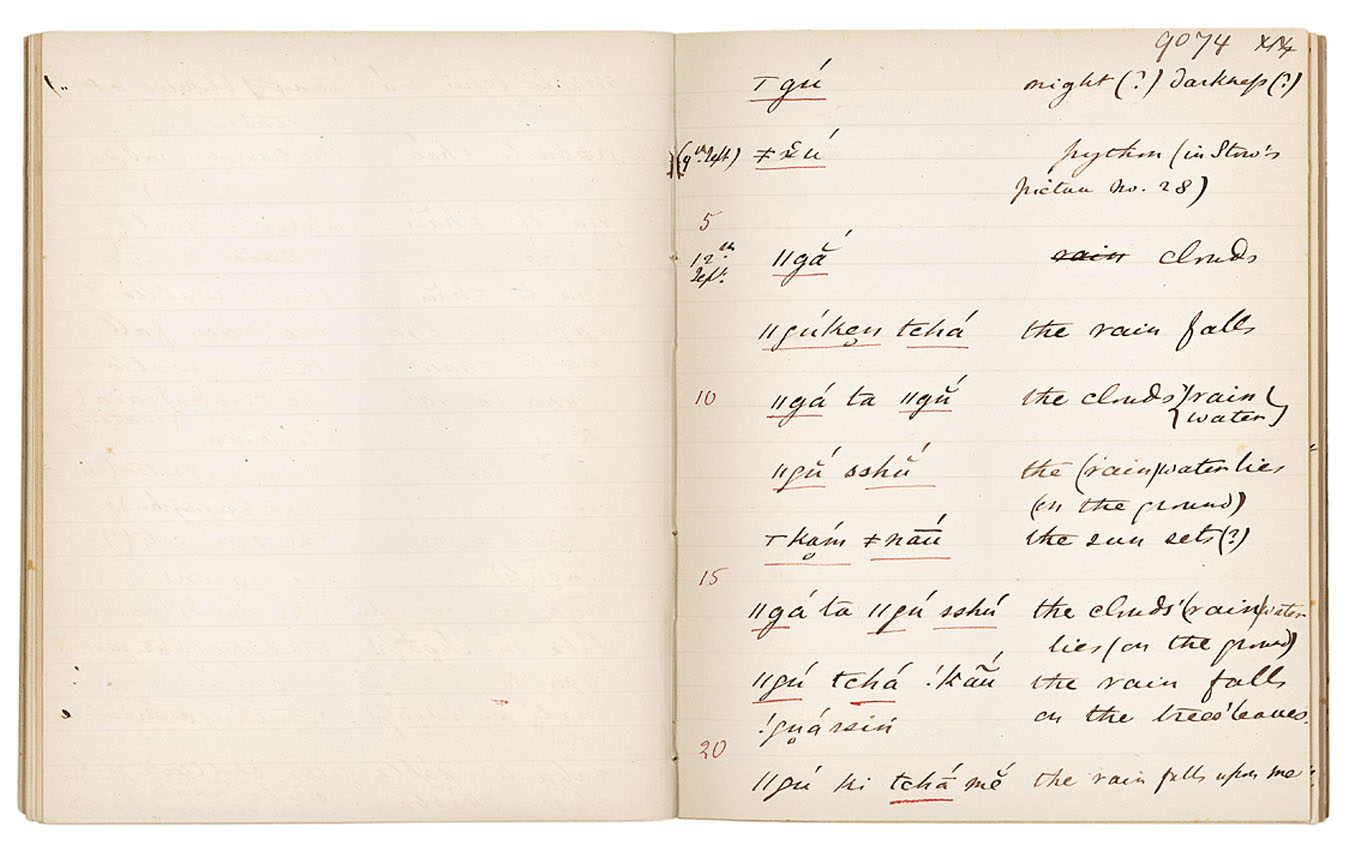 9074
⊤gú night (?) darkness (?)
(9th Sept) ǂx̌ú python (in Stow's
picture no. 28)
5
12th Sept. ǁgắ rain clouds
ǁgúken̥ tchá the rain falls
10 ǁgá ta ǁgŭ́ the clouds' {rain
{water}
ǁgŭ́ sshŭ́ the (rain)water lies
(on the ground)
⊤ḱam ǂnāū́ the sun sets (?)
15
ǁgá ta ǁgú sshú the clouds' (rain)water
lies (on the ground)
ǁgú tchá !kā̃ú the rain falls
!gu̥ársiń on the trees' leaves.
20
ǁgú ki tchá mĕ́ the rain falls upon me